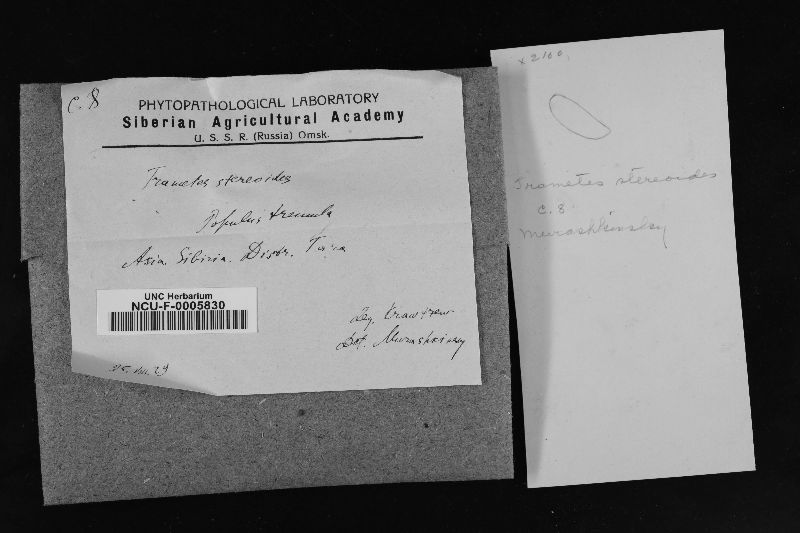 C. 8
PHYTOPATHOLOGICAL LABORATORY
Siberian Agricultural Academy
U. S. S. R. (Russia) Omsk.
Trametes stereoides
Populus tremula
Asia. Sibiria. Distr. Tara
UNC Herbarium
NCU-F-0005830
Leg. Krawtzew
Det. Murashkinsky
29
x 2100
Trametes stereoides
C. 8
Murashkinsky